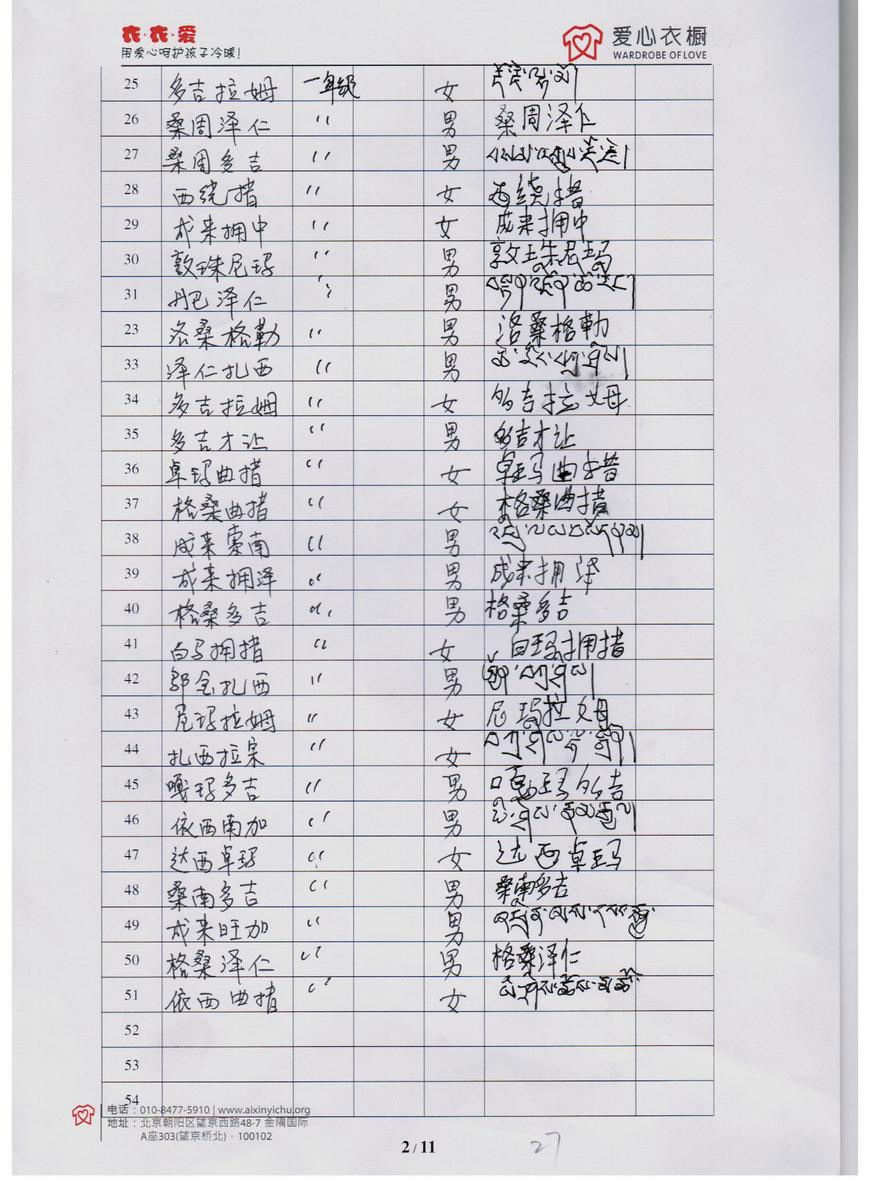 衣·衣·爱
用爱心呵护孩子冷暖!
爱心衣橱
WARDROBE OF LOVE
25 多吉拉姆 一年级 女
26 桑周泽仁 〃 男 桑周泽仁
27 桑周多吉 〃 男
28 西绕措 〃 女 西绕措
29 成来拥中 〃 女 成来拥中
30 敦珠尼玛 〃 男 敦珠尼玛
31 泽仁 〃 男
23 洛桑格勒 〃 男 洛桑格勒
33 泽仁扎西 〃 男
34 多吉拉姆 〃 女 多吉拉姆
35 多吉才让 〃 男 多吉才让
36 卓玛曲措 〃 女 卓玛曲措
37 格桑曲措 〃 女 格桑曲措
38 成来索南 〃 男
39 成来拥泽 〃 男 成来拥泽
40 格桑多吉 〃 男 格桑多吉
41 白马拥措 〃 女 白玛拥措
42 邬金扎西 〃 男
43 尼玛拉姆 〃 女 尼玛拉姆
44 扎西拉宗 〃 女
45 嘎玛多吉 〃 男 嘎玛多吉
46 依西南加 〃 男
47 达西卓玛 〃 女 达西卓玛
48 桑南多吉 〃 男 桑南多吉
49 成来旺加 〃 男
50 格桑泽仁 〃 男 格桑泽仁
51 依西曲措 〃 女
52
53
54
电话:010-8477-5910 | www.aixinyichu.org
地址:北京朝阳区望京西路48-7 金隅国际
A座303(望京桥北)·100102
2 / 11
27